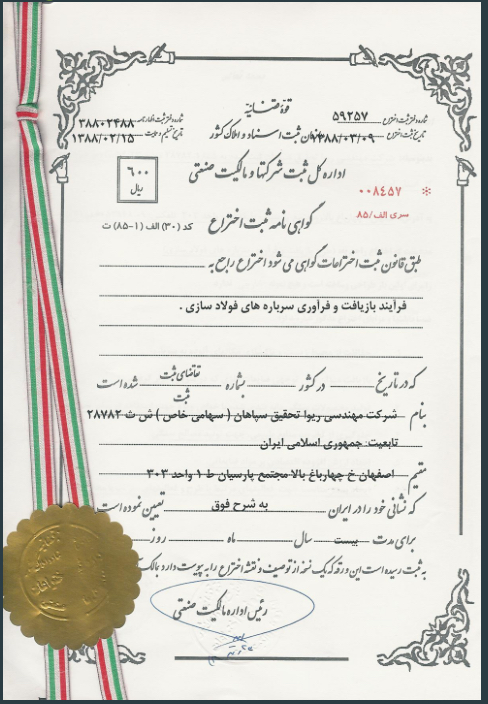 قوهٔ قضائیه
شماره دفتر ثبت اختراع ۵۹۲۵۷
شماره دفتر ثبت اظهارنامه ۳۸۸۰۲۴۸۸
سازمان ثبت اسناد و املاک کشور
تاریخ ثبت اختراع ۱۳۸۸/۰۳/۰۹
تاریخ تسلیم ۱۳۸۸/۰۲/۱۵
اداره کل ثبت شرکتها و مالکیت صنعتی
۶۰۰
ریال
* ۰۰۸۴۵۷
سری الف/۸۵
گواهی نامه ثبت اختراع
کد (۳۰) الف (۱-۸۵) ت
طبق قانون ثبت اختراعات گواهی می شود اختراع راجع به
فرآیند بازیافت و فرآوری سرباره های فولاد سازی .
که در تاریخ در کشور بشماره تقاضای ثبت شده است
ثبت
بنام شرکت مهندسی ریوا تحقیق سپاهان ( سهامی خاص ) ش ث ۲۸۷۸۲
تابعیت: جمهوری اسلامی ایران
مقیم اصفهان خ چهارباغ بالا مجتمع پارسیان ط ۱ واحد ۳۰۳
که نشانی خود را در ایران به شرح فوق تعیین نموده است
برای مدت بیست سال ماه روز
به ثبت رسیده است این ورقه که یک نسخه از توصیف و نقشه اختراع را به پیوست دارد بمالک
رئیس اداره مالکیت صنعتی